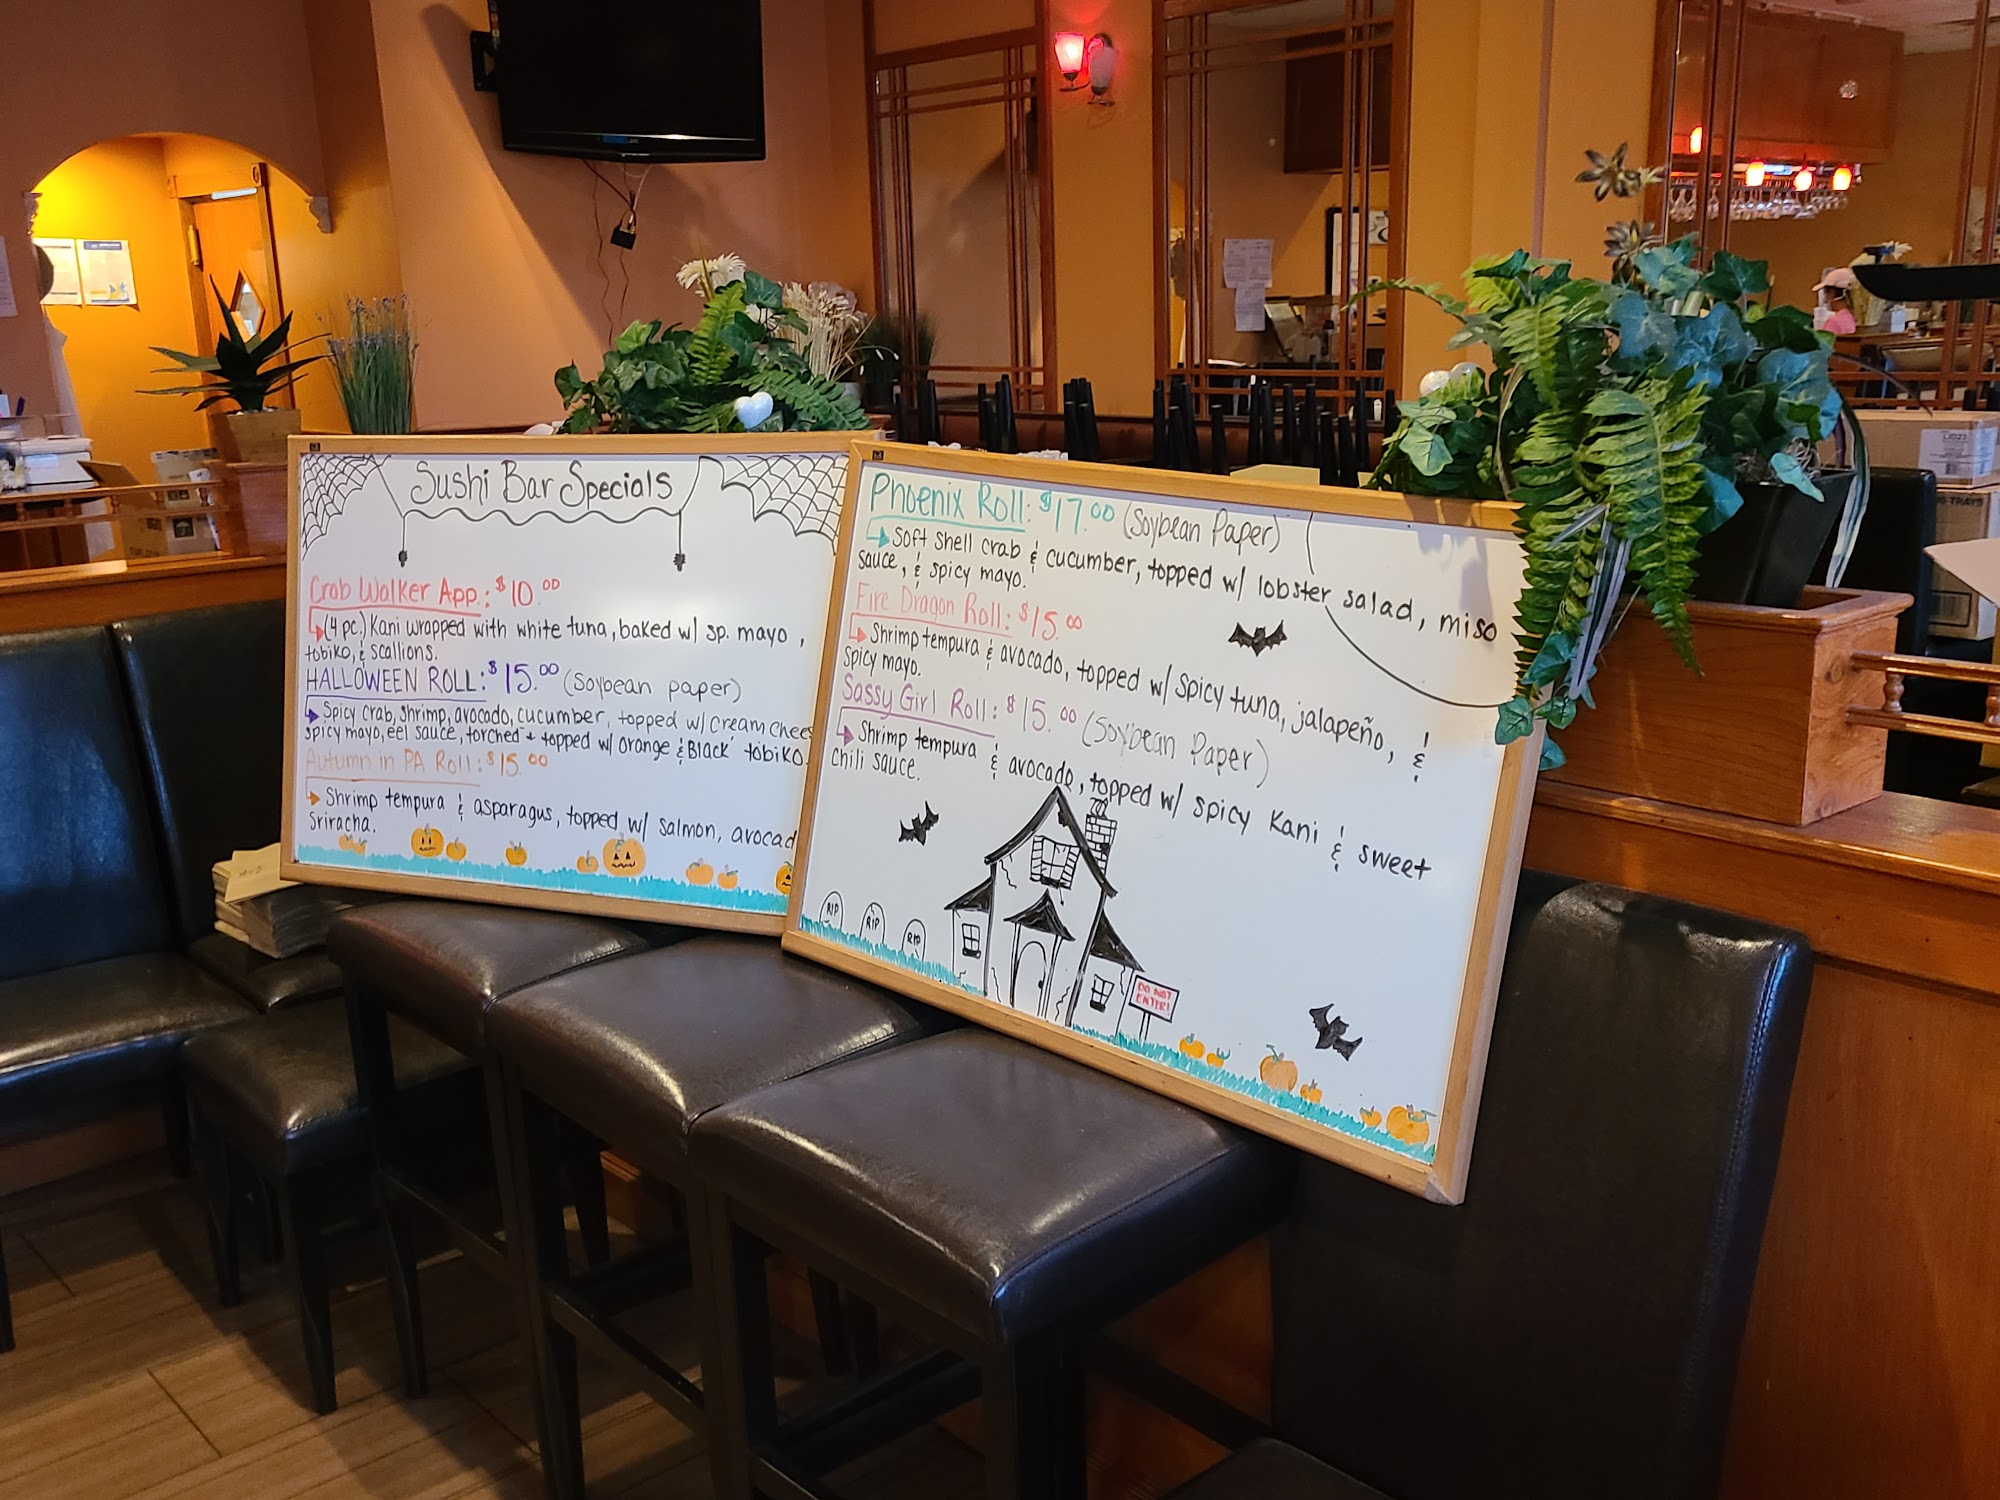 Sushi Bar Specials
Crab Walker App.: $10.00
(4 pc.) Kani wrapped with white tuna, baked w/ sp. mayo,
tobiko, & scallions.
HALLOWEEN ROLL: $15.00 (soybean paper)
Spicy crab, shrimp, avocado, cucumber, topped w/ cream chees
spicy mayo, eel sauce, torched + topped w/ orange & Black tobiko.
Autumn in PA Roll: $15.00
Shrimp tempura & asparagus, topped w/ salmon, avocad
Sriracha.
Phoenix Roll: $17.00 (Soybean Paper)
Soft shell crab & cucumber, topped w/ lobster salad, miso
sauce, & spicy mayo.
Fire Dragon Roll: $15.00
Shrimp tempura & avocado, topped w/ spicy tuna, jalapeño, &
spicy mayo.
Sassy Girl Roll: $15.00 (Soybean Paper)
Shrimp tempura & avocado, topped w/ spicy Kani & sweet
chili sauce.
RIP
RIP
RIP
DO NOT
ENTER!